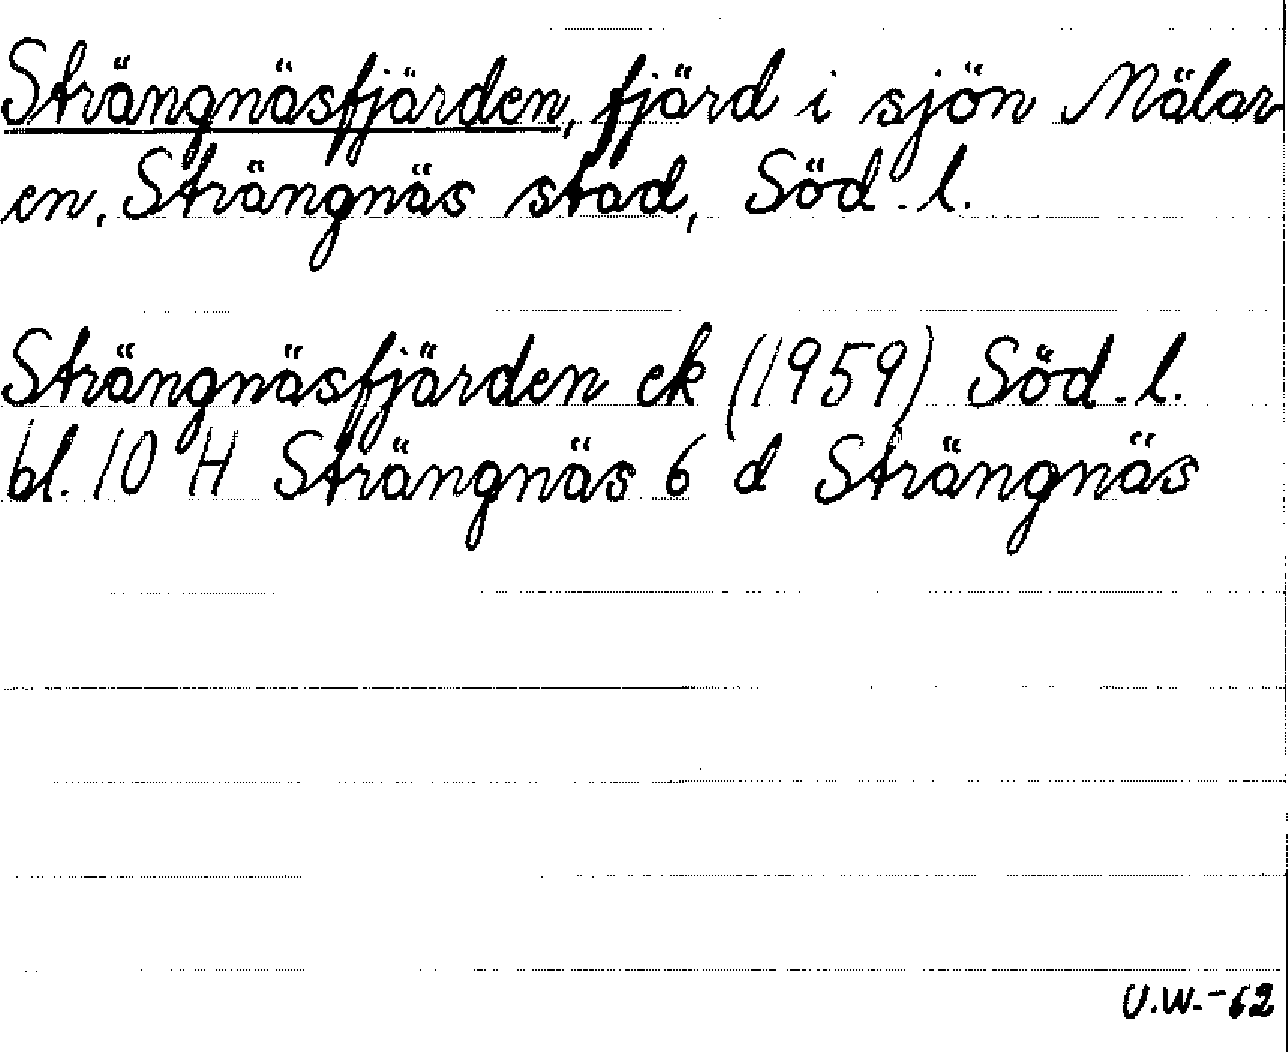 Strängnäsfjärden, fjärd i sjön Mälar
en, Strängnäs stad, Söd. l.
Strängnäsfjärden ek (1959) Söd. l.
bl. 10 H Strängnäs 6 d Strängnäs
U.W. -62